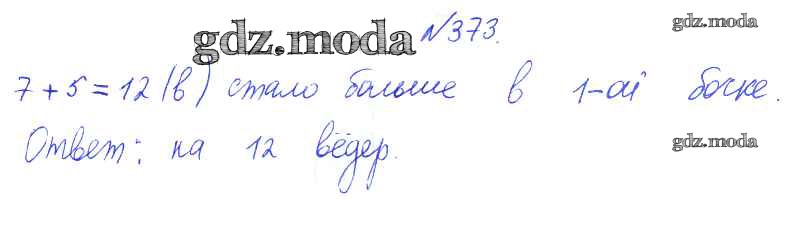 gdz.moda №373. gdz.moda
7+5=12 (в) стало больше в 1-ой бочке.
Ответ: на 12 вёдер. gdz.moda